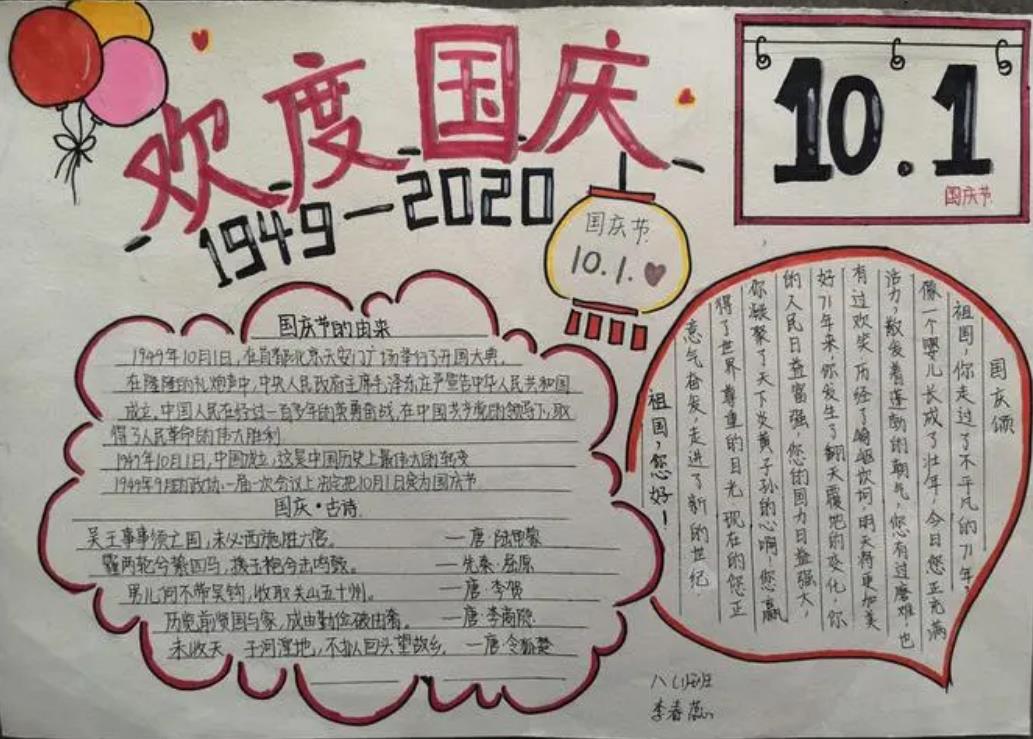 欢度国庆
1949-2020
10.1
国庆节
国庆节
10.1.
国庆节的由来
1949年10月1日,在首都北京天安门广场举行了开国大典,
在隆隆的礼炮声中,中央人民政府主席毛泽东庄严宣告中华人民共和国
成立,中国人民在经过一百多年的英勇奋战,在中国共产党的领导下,取
得了人民革命的伟大胜利
1949年10月1日,中国成立,这是中国历史上最伟大的转变
1949年9月的政协一届一次会议上决定把10月1日定为国庆节
国庆·古诗
吴王事事须亡国,未必西施胜六宫。 —唐·陆龟蒙
霾两轮兮絷四马,援玉枹兮击鸣鼓。 —先秦·屈原
男儿何不带吴钩,收取关山五十州。 —唐·李贺
历览前贤国与家,成由勤俭破由奢。 —唐·李商隐
未收天子河湟地,不拟回头望故乡。 —唐·令狐楚
国庆颂
祖国,你走过了不平凡的71年,
像一个婴儿长成了壮年,今日您正充满
活力,散发着蓬勃的朝气,您有过磨难,也
有过欢笑,历经了崎岖坎坷,明天将更加美
好71年来,你发生了翻天覆地的变化,你
的人民日益富强,您的国力日益强大,
你凝聚了天下炎黄子孙的心啊,您赢
得了世界尊重的目光,现在的您正
意气奋发,走进了新的世纪
祖国,您好!
八(1)班
李春蕊